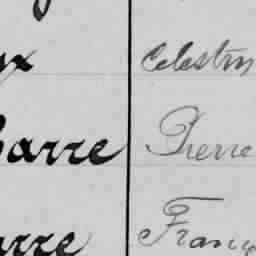 ux Celestin
Barre Pierre
arre Franç